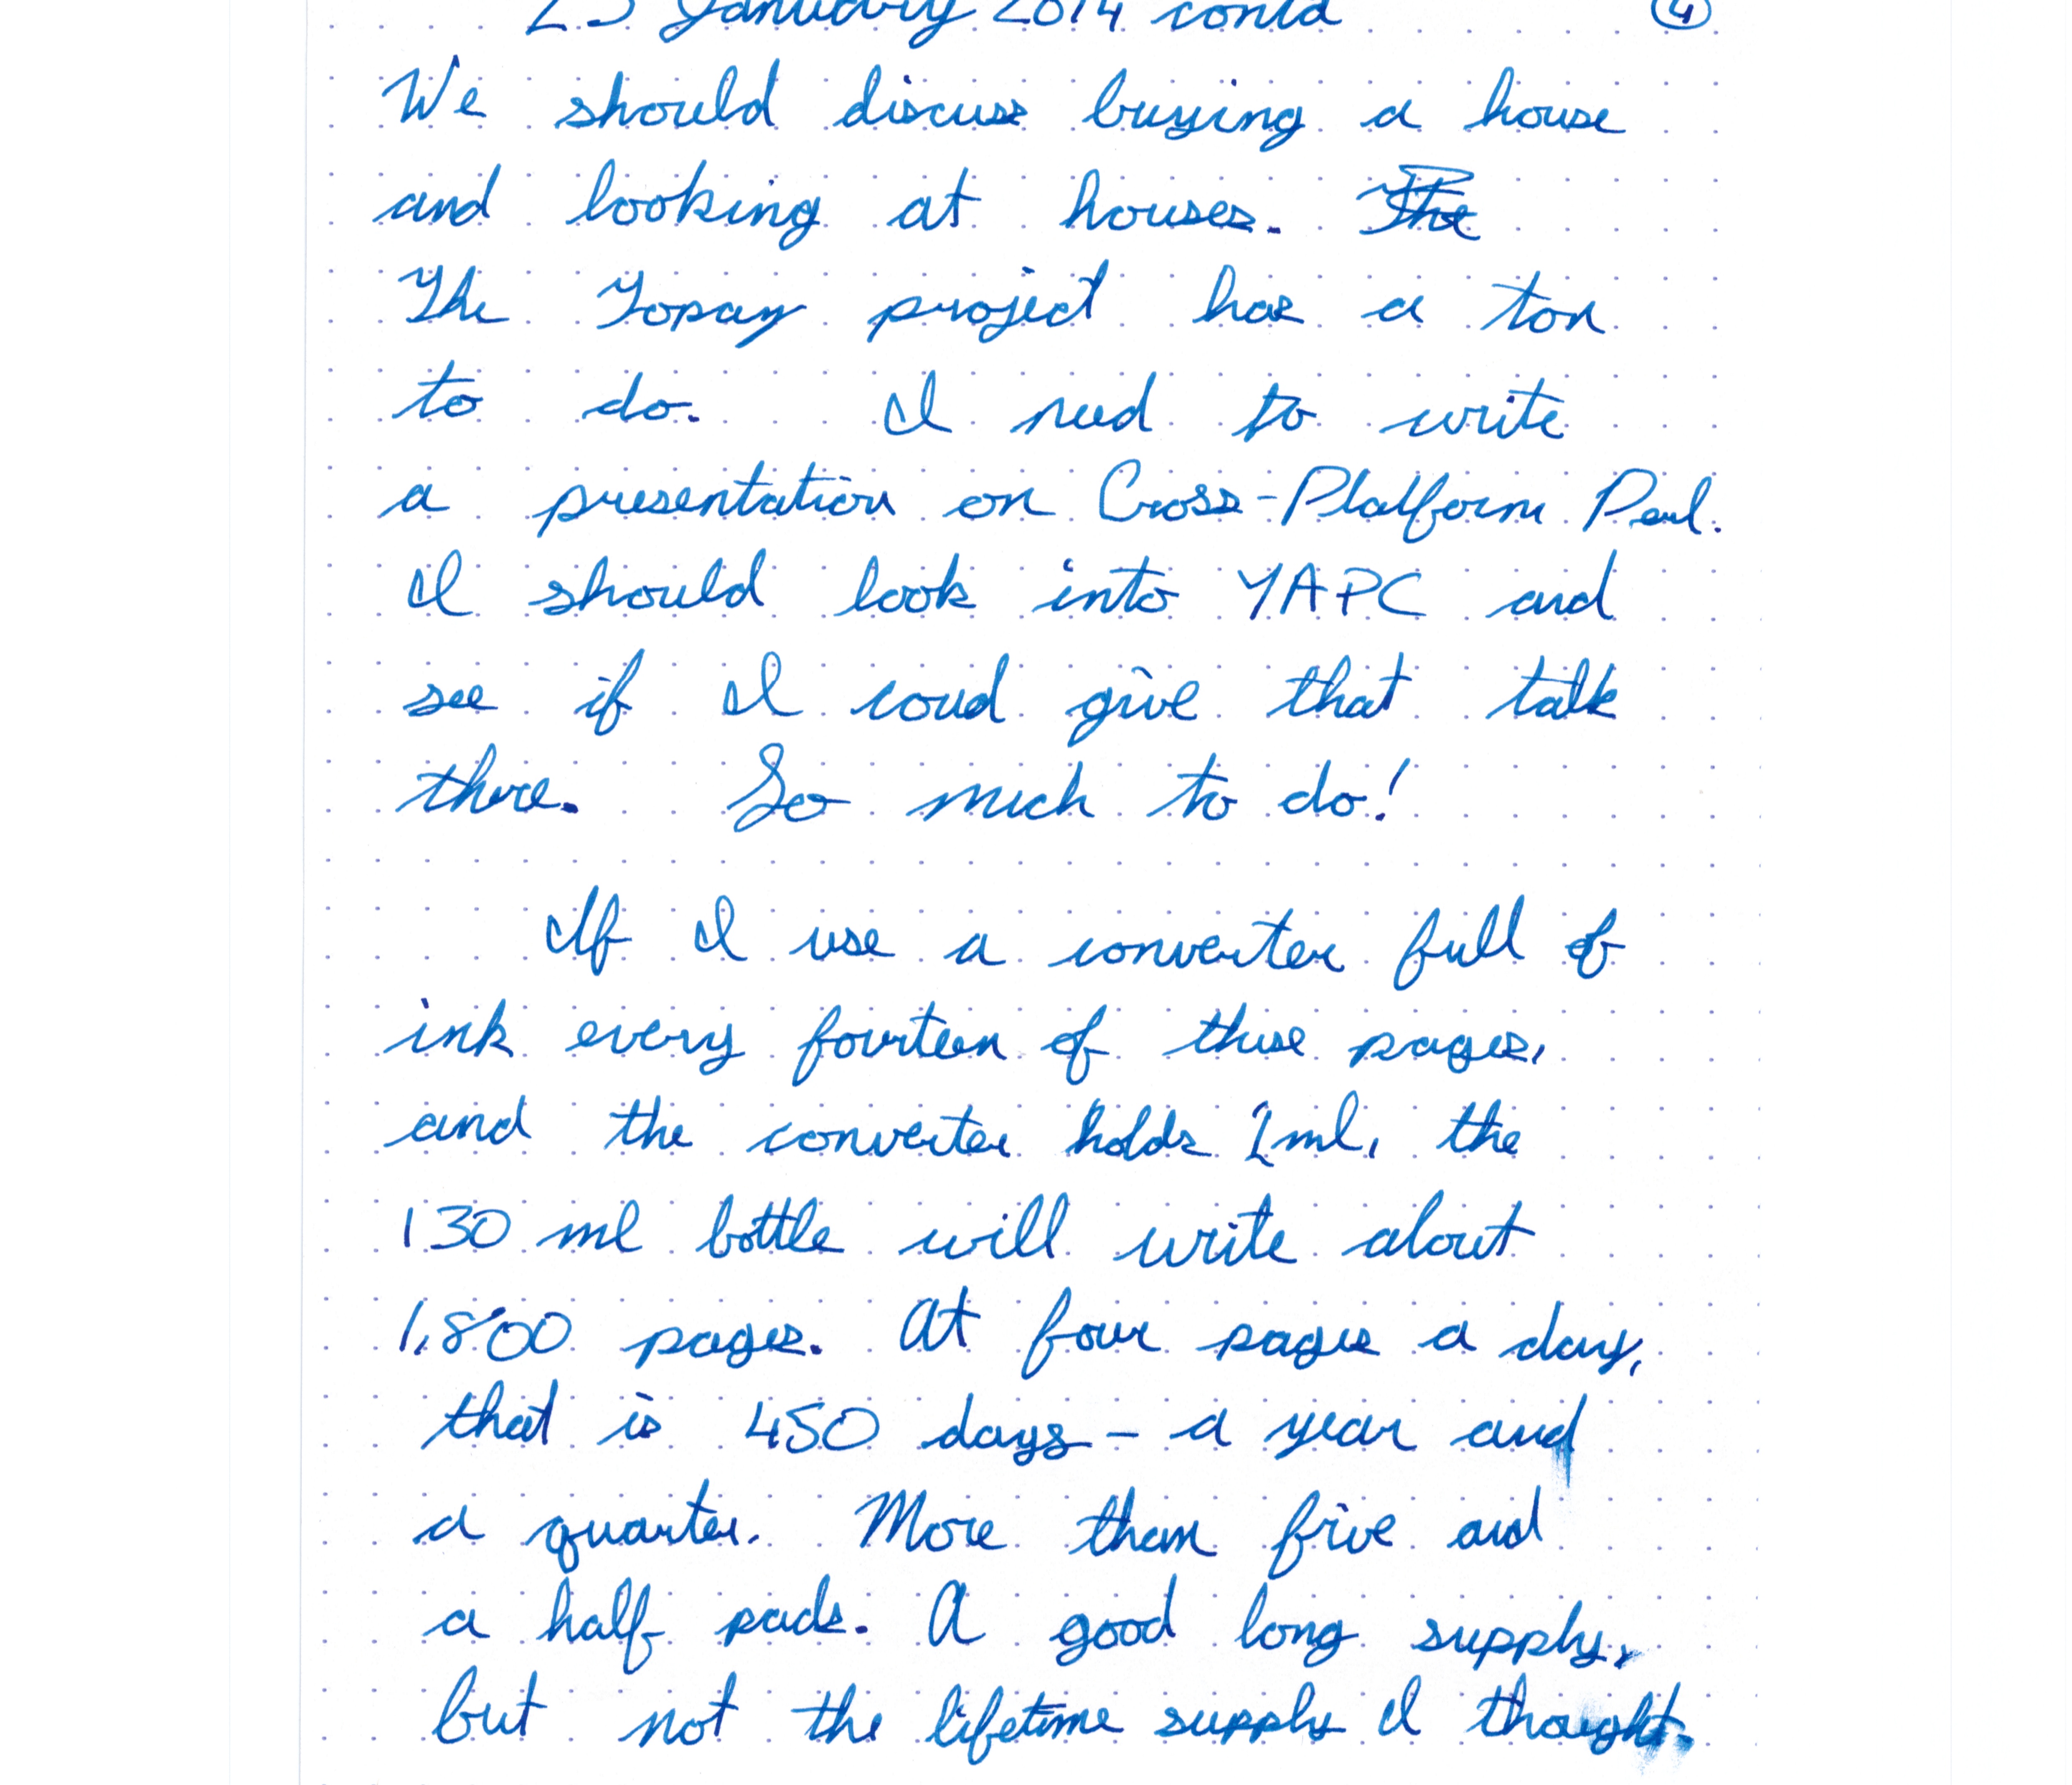 23 January 2014 contd ④
We should discuss buying a house
and looking at houses. The
The Topaz project has a ton
to do. I need to write
a presentation on Cross-Platform Perl.
I should look into YAPC and
see if I coud give that talk
there. So much to do!
If I use a converter full of
ink every fourteen of these pages,
and the converter holds 1ml, the
130 ml bottle will write about
1,800 pages. At four pages a day,
that is 450 days - a year and
a quarter. More than five and
a half pads. A good long supply,
but not the lifetime supply I thought.